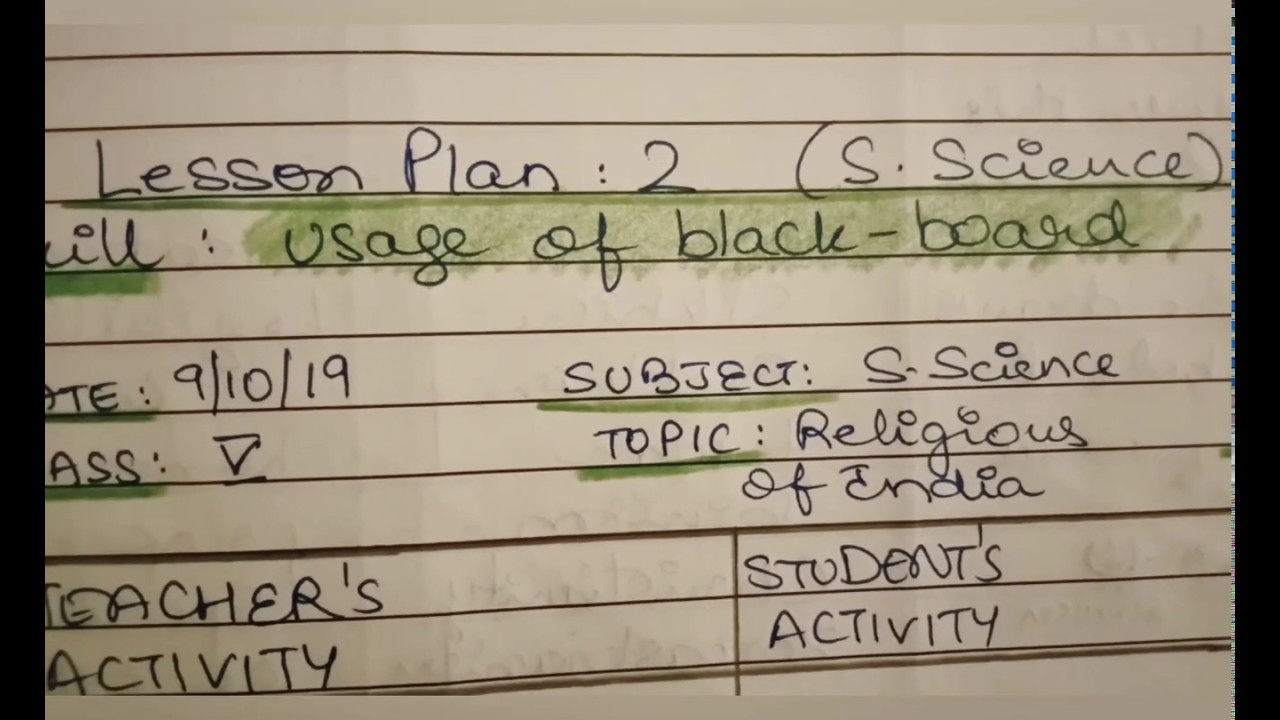 Lesson Plan : 2 (S. Science)
ill : Usage of black-board
ATE : 9/10/19 SUBJECT: S. Science
ASS : V TOPIC : Religious
of India
TEACHER'S STUDENT'S
ACTIVITY ACTIVITY